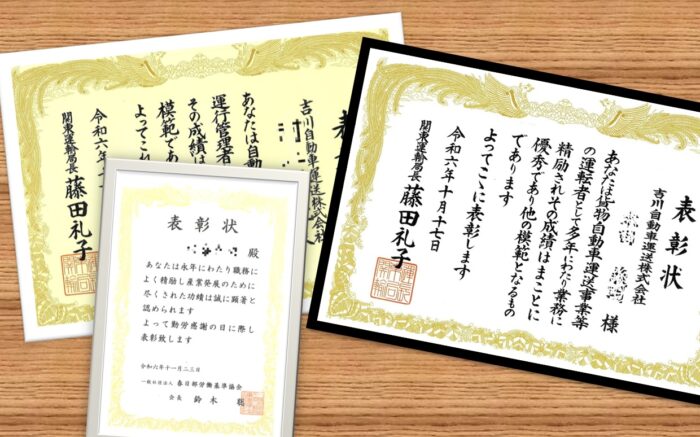 表
吉川自動車運送株式会社
あなたは自動
運行管理者
その成績は
模範であ
よってこ
令和六年
関東運輸局長 藤田礼子
表彰状
殿
あなたは永年にわたり職務に
よく精励し産業発展のために
尽くされた功績は誠に顕著と
認められます
よって勤労感謝の日に際し
表彰致します
令和六年十一月二三日
一般社団法人 春日部労働基準協会
会長 鈴木
表彰状
吉川自動車運送株式会社
様
あなたは貨物自動車運送事業等
の運転者として多年にわたり業務に
精励されその成績はまことに
優秀であり他の模範となるもの
であります
よってここに表彰します
令和六年十月十七日
関東運輸局長 藤田礼子